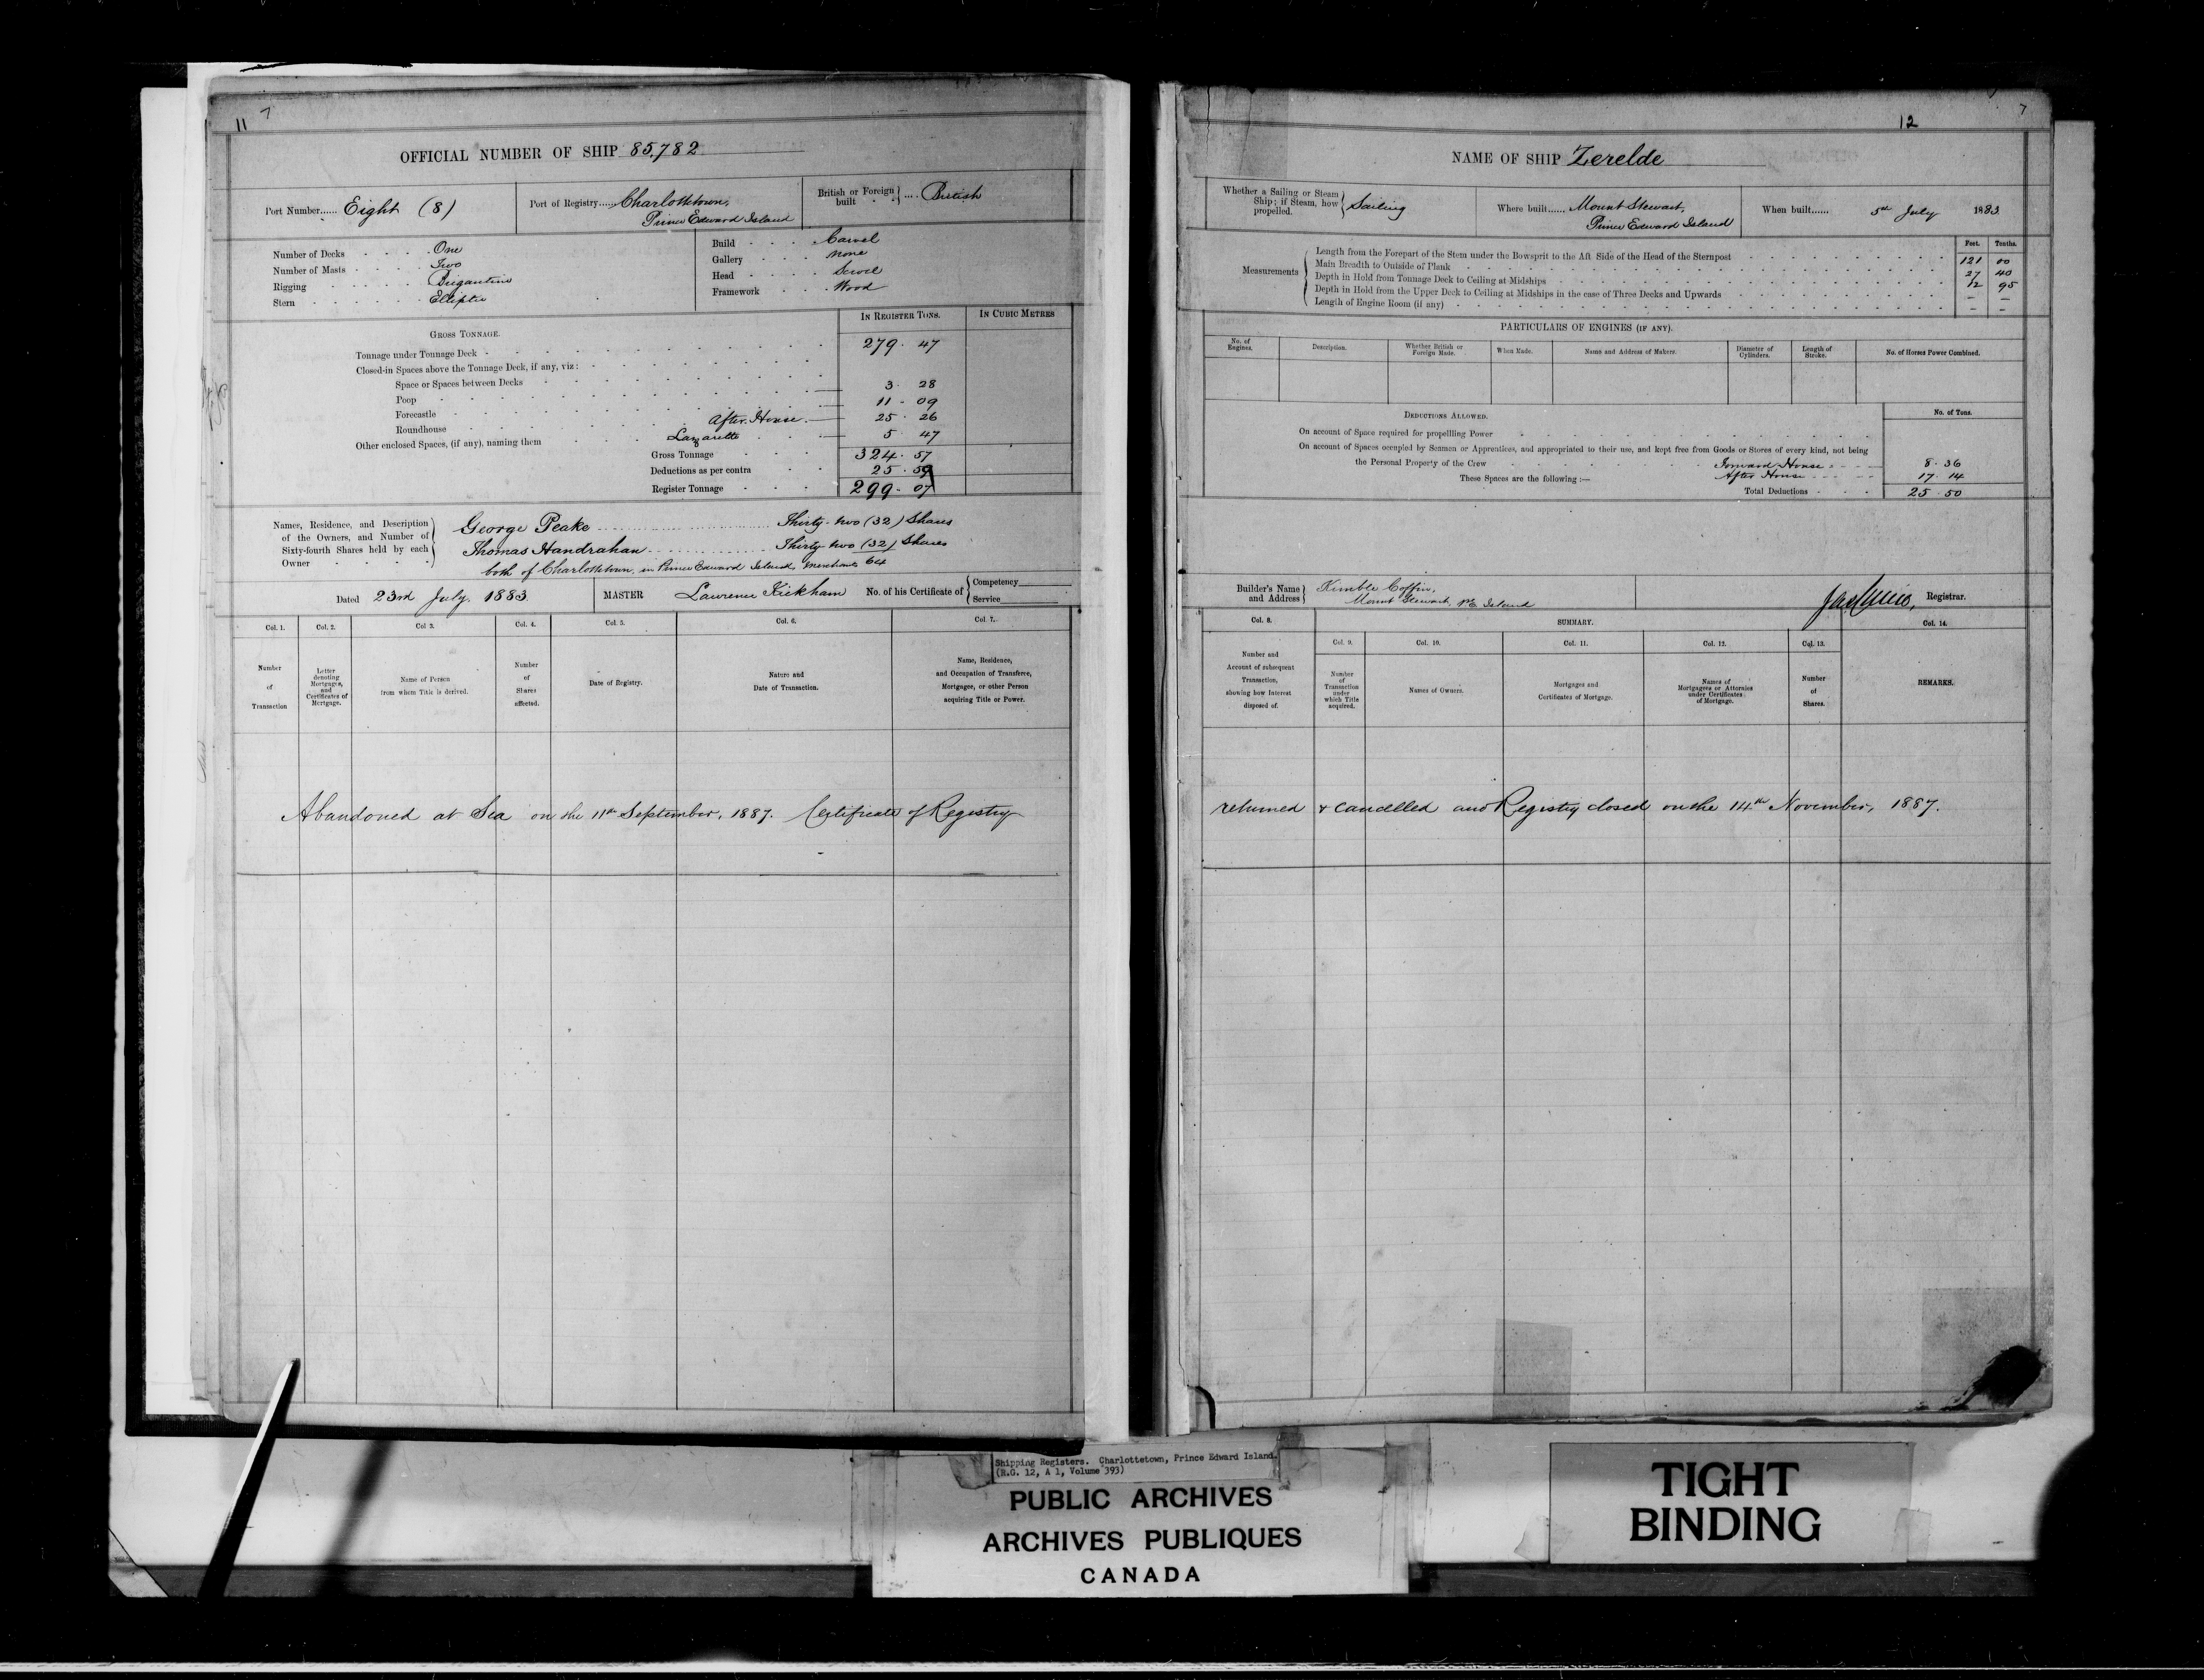 11 7
OFFICIAL NUMBER OF SHIP 85,782
Port Number...... Eight (8)
Port of Registry...... Charlottetown,
Prince Edward Island
British or Foreign built .... British
Number of Decks One
Number of Masts Two
Rigging Brigantine
Stern Elliptic
Build Carvel
Gallery none
Head Scroll
Framework Wood
GROSS TONNAGE.
IN REGISTER TONS.
IN CUBIC METRES
Tonnage under Tonnage Deck 279. 47
Closed-in Spaces above the Tonnage Deck, if any, viz:
Space or Spaces between Decks 3. 28
Poop 11 - 09
Forecastle After House 25. 26
Roundhouse
Other enclosed Spaces, (if any), naming them Lazarette 5. 47
Gross Tonnage 324. 57
Deductions as per contra 25.
Register Tonnage 299- 07
Names, Residence, and Description
of the Owners, and Number of
Sixty-fourth Shares held by each
Owner
George Peake Thirty-two (32) Shares
Thomas Handrahan Thirty two (32) Shares
both of Charlottetown, in Prince Edward Island, Merchants 64
Dated 23rd July. 1883.
MASTER Lawrence Kickham
No. of his Certificate of
Competency
Service
Col. 1. Col. 2. Col 3. Col. 4. Col. 5. Col. 6. Col. 7.
Number of Transaction
Letter denoting Mortgages, and Certificates of Mortgage.
Name of Person from whom Title is derived.
Number of Shares affected.
Date of Registry.
Nature and Date of Transaction.
Name, Residence, and Occupation of Transferee, Mortgagee, or other Person acquiring Title or Power.
Abandoned at Sea on the 11th September, 1887. Certificate of Registry
12 7
NAME OF SHIP Zerelde
Whether a Sailing or Steam Ship; if Steam, how propelled. Sailing
Where built...... Mount Stewart,
Prince Edward Island
When built...... 5th July 1883.
Measurements
Feet. Tenths.
Length from the Forepart of the Stem under the Bowsprit to the Aft Side of the Head of the Sternpost 121 00
Main Breadth to Outside of Plank 27 40
Depth in Hold from Tonnage Deck to Ceiling at Midships 12 95
Depth in Hold from the Upper Deck to Ceiling at Midships in the case of Three Decks and Upwards - -
Length of Engine Room (if any) - -
PARTICULARS OF ENGINES (IF ANY).
No. of Engines.
Description.
Whether British or Foreign Made.
When Made.
Name and Address of Makers.
Diameter of Cylinders.
Length of Stroke.
No. of Horses Power Combined.
DEDUCTIONS ALLOWED.
No. of Tons.
On account of Space required for propelling Power
On account of Spaces occupied by Seamen or Apprentices, and appropriated to their use, and kept free from Goods or Stores of every kind, not being
the Personal Property of the Crew Forward House 8. 36
These Spaces are the following :— After House 17. 14
Total Deductions 25. 50
Builder's Name and Address
Kimble Coffin,
Mount Stewart, P.E. Island
Registrar.
Col. 8.
SUMMARY.
Col. 14.
Col. 9. Col. 10. Col. 11. Col. 12. Col. 13.
Number and Account of subsequent Transaction, showing how Interest disposed of.
Number of Transaction under which Title acquired.
Names of Owners.
Mortgages and Certificates of Mortgage.
Names of Mortgagees or Attornies under Certificates of Mortgage.
Number of Shares.
REMARKS.
returned & cancelled and Registry closed on the 14th November, 1887.
Shipping Registers. Charlottetown, Prince Edward Island.
(R.G. 12, A 1, Volume 393)
PUBLIC ARCHIVES
ARCHIVES PUBLIQUES
CANADA
TIGHT
BINDING